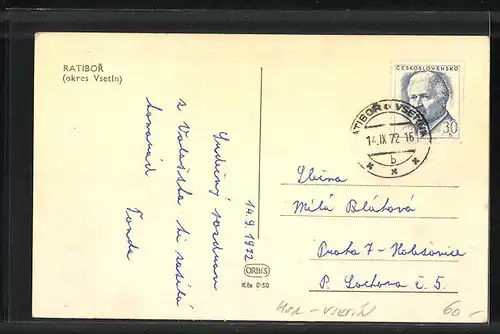 RATIBOŘ
(okres Vsetín)
14.9.1972
Srdečný pozdrav
z Valašska ti zasílá
kamarád
Vonda
ORBIS
Kčs 0·50
ČESKOSLOVENSKO
30
RATIBOŘ u VSETÍNA
14.IX 72-16
b
Sběna
Milá Bláhová
Praha 7 - Holešovice
P. Lochova č. 5.
HOR - VSETÍN
60.-